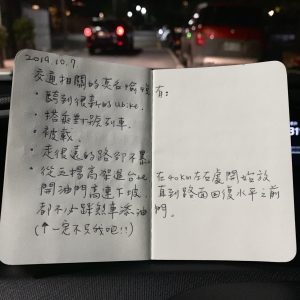 2019.10.7
交通相關的愛台愉悅有:
・騎到很新的Ubike.
・搭乘對號列車.
・被載.
・走很遠的路卻不累.
從五楊高架進台北 在40km左右處開始放
開油門高速下坡. 直到路面回復水平之前
都不必踩煞車添油門。
(↑一定不只我吧!!)